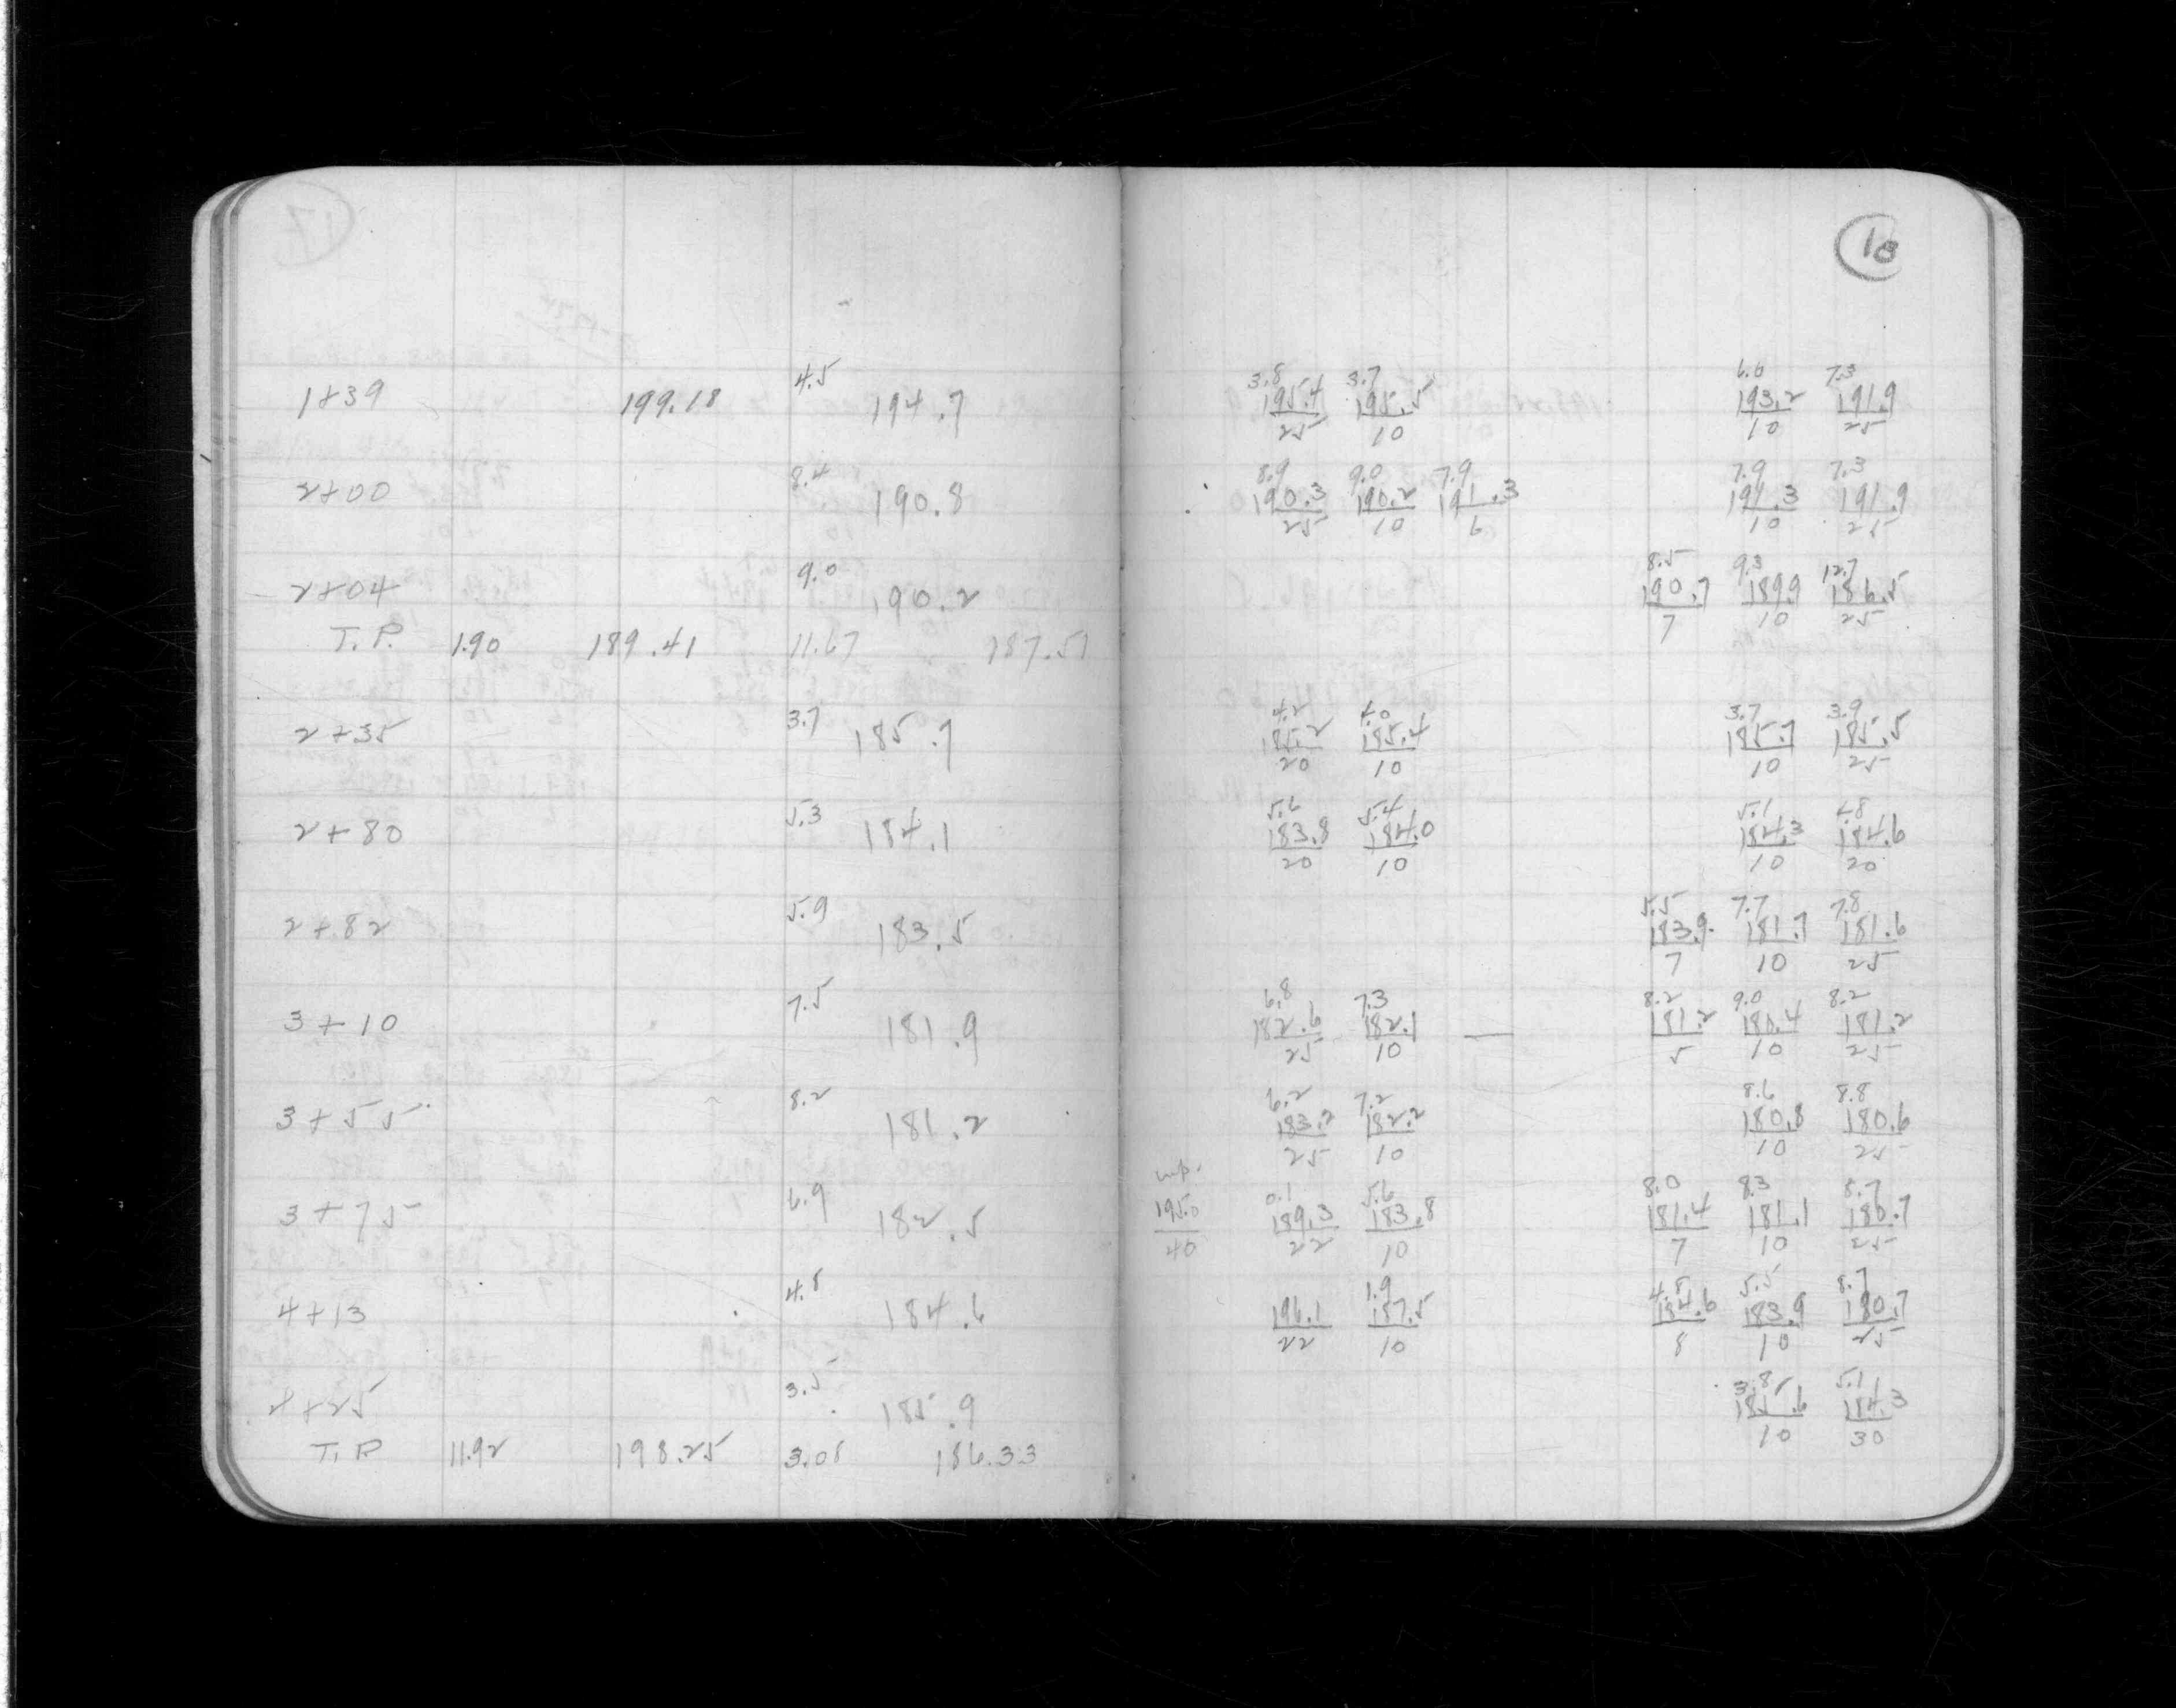 18
3.8 3.7 6.0 7.3
1+39 199.18 4.5 194.7 195.4 195.5 193.2 191.9
25 10 10 25
8.9 9.0 7.9 7.9 7.3
2+00 8.4 190.8 190.3 190.2 191.3 191.3 191.9
25 10 6 10 25
8.5 9.3 12.7
2+04 9.0 190.2 190.7 189.9 186.5
7 10 25
T.P. 1.90 189.41 11.67 187.51
4.2 4.0 3.7 3.9
2+35 3.7 185.7 185.2 185.4 185.7 185.5
20 10 10 25
5.6 5.4 5.1 4.8
2+80 5.3 184.1 183.8 184.0 184.3 184.6
20 10 10 20
5.5 7.7 7.8
2+82 5.9 183.5 183.9 181.7 181.6
7 10 25
6.8 7.3 8.2 9.0 8.2
3+10 7.5 181.9 182.6 182.1 — 181.2 180.4 181.2
25 10 5 10 25
6.2 7.2 8.6 8.8
3+55 8.2 181.2 183.2 182.2 180.8 180.6
25 10 10 25
0.1 5.6 8.0 8.3 8.7
3+75 6.9 182.5 195.0 189.3 183.8 181.4 181.1 180.7
40 22 10 7 10 25
1.9 4.8 5.5 8.7
4+13 4.8 184.6 196.1 187.5 184.6 183.9 180.7
22 10 8 10 25
3.8 5.1
4+25 3.5 185.9 185.6 184.3
10 30
T.P. 11.92 198.25 3.08 186.33